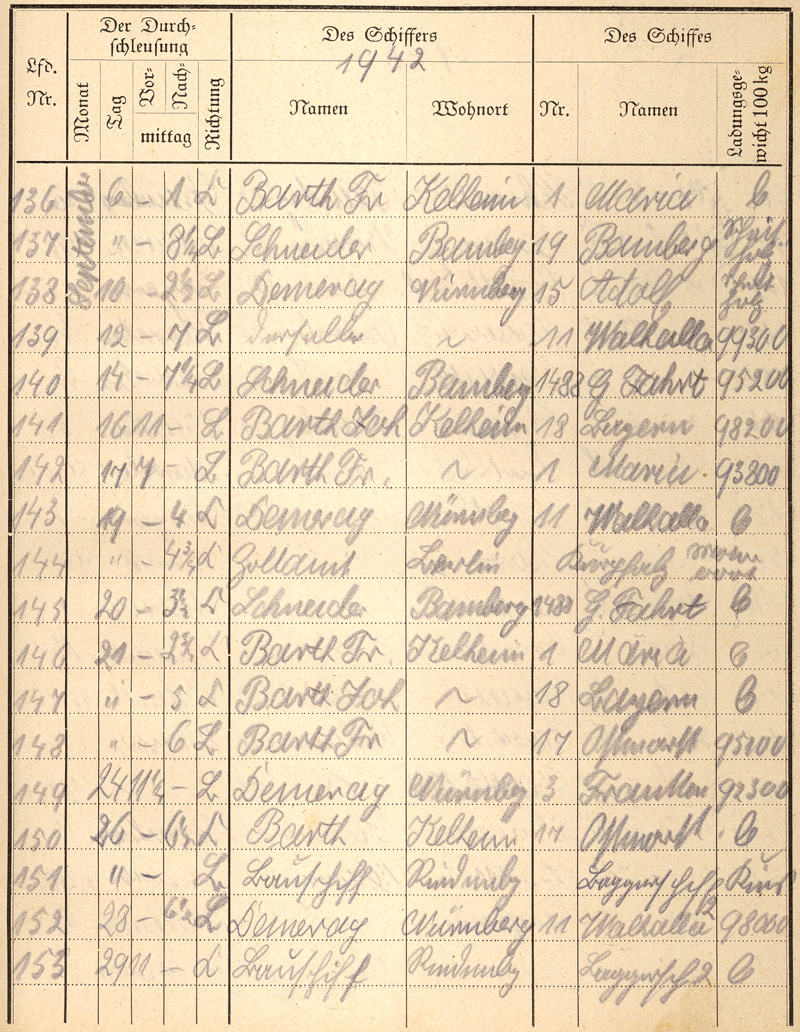 Lfd. Nr.
Der Durchschleusung
Monat
Tag
Vor-
Nach-
mittag
Richtung
Des Schiffers
1942
Namen
Wohnort
Des Schiffes
Nr.
Namen
Ladungsgewicht 100 kg
136 September 6 – 1 Barth Fr Kelheim 1 Maria
137 " – 8¼ Schneider Bamberg 19 Bamberg
138 10 – 2½ Demerag Nürnberg 15 Adolf
139 12 – 7 derselbe ~ 11 Walhalla 99300
140 14 – 7¼ Schneider Bamberg 1488 G Fahrt 95200
141 16 11 – Barth Joh Kelheim 18 Bayern 98200
142 17 7 Barth Fr. ~ 1 Maria 93800
143 19 – 4 Demerag Nürnbg 11 Walhalla
144 " – 4¾ Zollamt Berlin Kurpfalz
145 20 – 3½ Schneider Bamberg 1488 G. Fahrt
146 21 – 2½ Barth Fr. Kelheim 1 Maria
147 " – 5 Barth Joh ~ 18 Bayern
148 " – 6 Barth Fr ~ 17 Ostmark 95100
149 24 11½ – Demerag Nürnberg 3 Franken 92300
150 26 – 6½ Barth Kelheim 17 Ostmark
151 " – Bauschiff Riedenbg Baggersch Kies
152 28 – 6½ Demerag Nürnberg 11 Walhalla 98000
153 29 11 – Bauschiff Riedenbg Baggersch 2